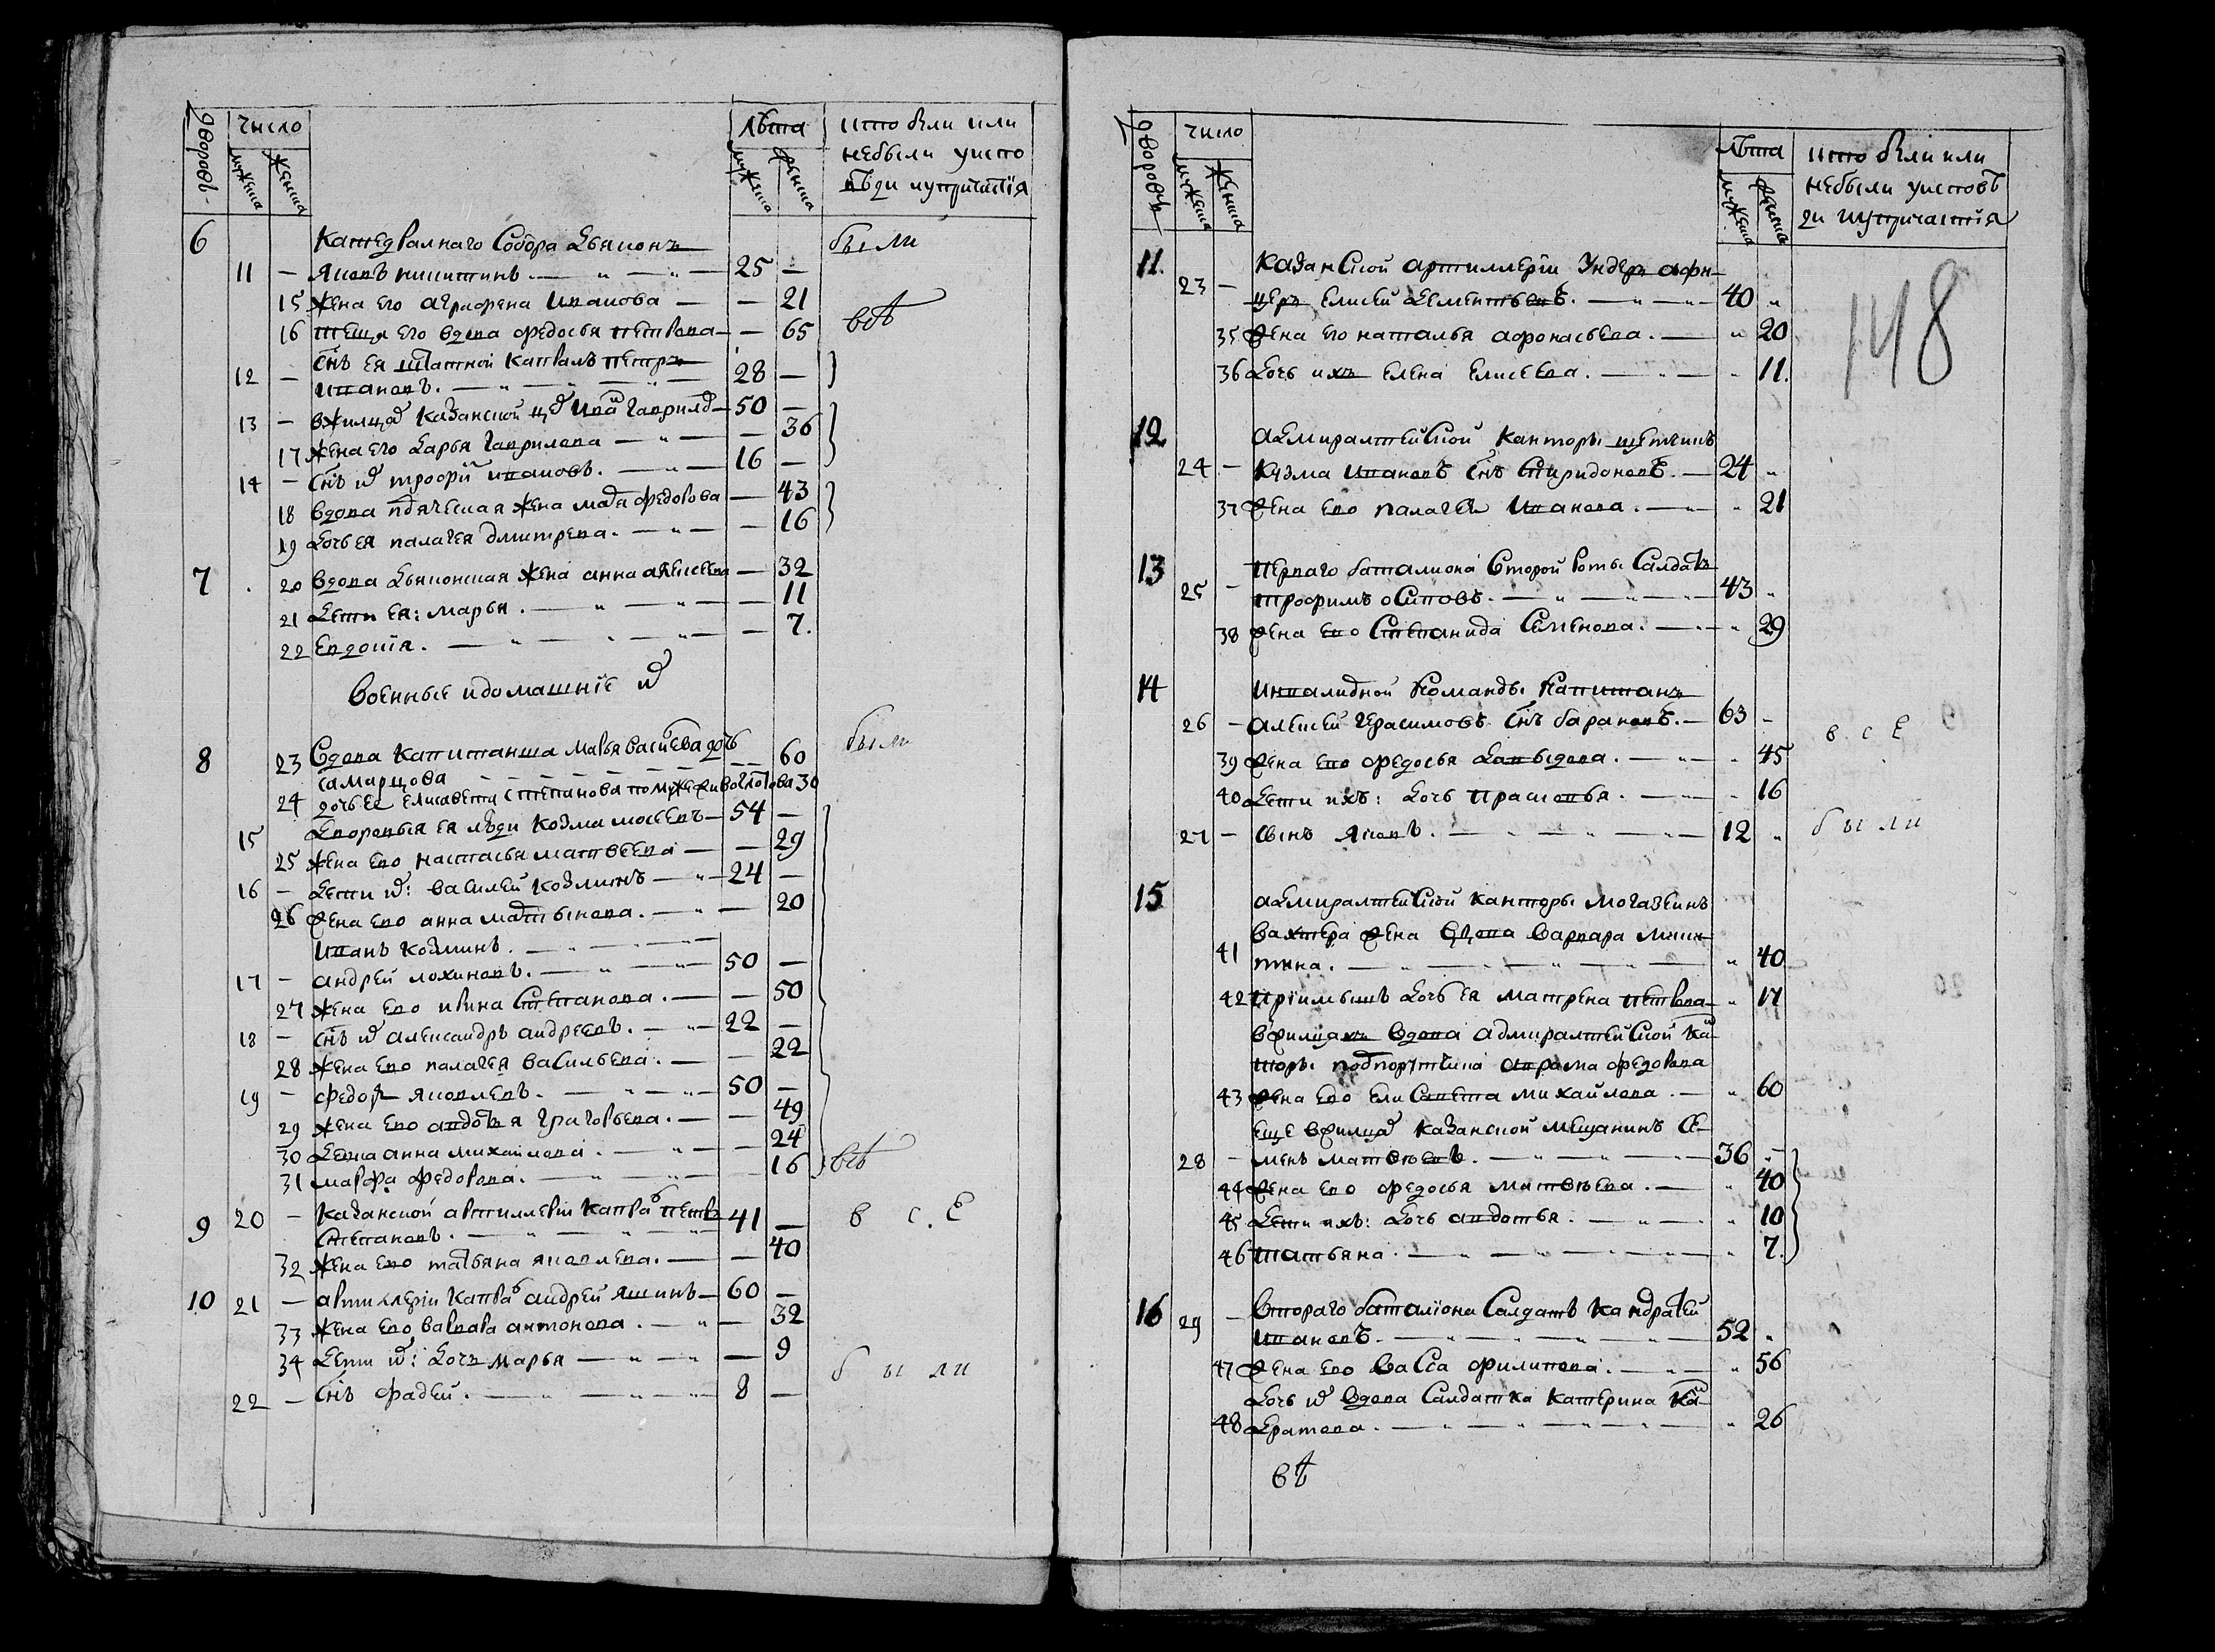 дворовъ
число
мужеска
женска
лѣта
мужеска
женска
кто были или
небыли уиспо
вѣди иупричастїя
6
Катедралнаго Собора Дьяконъ
были
11 — Яковъ никитинъ. — 25 —
15 жена его аграфена Иванова — — 21
16 теща его вдова федосья петрова — — 65
всѣ
снъ ея штатной Капралъ петръ
12 — ивановъ. — 28 —
13 — вжилцах Казанской цех Иван гаврилов — 50 —
17 жена его Дарья гаврилова — — 36
14 — снъ их трофим ивановъ. — 16 —
18 вдова подяческая жена федорова — 43
19 дочь ея палагея дмитрева. — — 16
7
20 вдова дьяконская жена анна алексеева — 32
21 дети ея: марья. — — 11
22 Евдокїя. — — 7.
военные идомашнїе их
8
23 Вдова Капитанша Марья васильева дочь
самарцова — 60
были
24 дочь ее елисавета степанова помуже 30
дворовыя ея люди
15 козма мосеевъ — 54 —
25 жена ево настасья матвеева — — 29
16 — дети их: василей козминъ — 24 —
26 жена ево анна мартынова. — — 20
иванъ козминъ. —
17 — андрей лохиновъ. — 50 —
27 жена ево ирина Степанова. — — 50
18 — снъ их александръ андреевъ. — 22 —
28 жена ево палагея васильева. — — 22
19 — федоръ яковлевъ. — 50 —
29 жена ево авдотья григорьева. — — 49
30 девка анна михаилова. — — 24
31 марфа федорова. — — 16
всѣ
9
20 — казанской артиллерїи капрал петръ
степановъ. — 41 —
в с е
32 жена ево татьяна яковлева. — — 40
10
21 — артиллерїи капрал андрей яшинъ — 60 —
33 жена ево варвара антонова. — — 32
34 дети их: дочь марья — — 9
22 — снъ фадей. — 8 —
были
дворовъ
число
мужеска
женска
лѣта
мужеска
женска
кто были или
небыли уисповѣ
ди иупричастїя
148
11.
казанской артиллерїи Ундеръ афи-
23 — церъ елисей дементьевъ. — 40 „
35 жена его наталья афонасьева. — „ 20
36 дочь ихъ елена елисеева. — „ 11.
12
адмиралтейской канторы щетчикъ
24 — козма ивановъ снъ спиридоновъ. — 24 „
37 жена ево палагея Иванова. — „ 21
13
перваго баталиона второй роты салдатъ
25 — трофимъ осиповъ. — 43 „
38 жена ево Степанида Семенова. — „ 29
14
инвалидной команды капитанъ
26 — алексей герасимовъ снъ барановъ. — 63 —
в с е
39 жена ево федосья давыдова. — „ 45
40 дети ихъ: дочь прасковья. — „ 16
27 — сынъ яковъ. — 12 „
были
15
адмиралтейской канторы могазеинъ
вахтера жена вдова варвара мики-
41 тина. — „ 40
42 прїимышъ дочь ея матрена петрова — „ 17
вжилцахъ вдова адмиралтейской кан-
торы абрама федорова
43 жена ево елисавета михайлова. — „ 60
еще вжилцах казанской мещанинъ се-
28 — менъ матвѣевъ. — 36 „
44 жена ево федосья матвѣева. — „ 40
45 дети ихъ: дочь авдотья. — „ 10
46 татьяна. — „ 7.
16
втораго баталїона салдатъ кандратей
29 — ивановъ. — 52 „
47 жена ево васса филипова. — „ 56
дочь их вдова салдатка катерина кан-
48 дратова. — „ 26